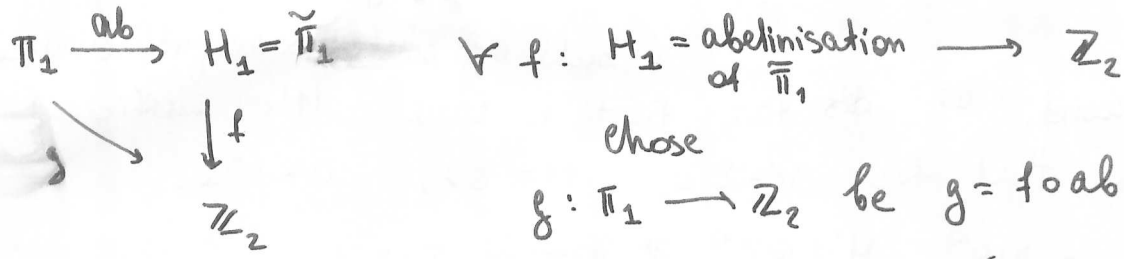 π₁ —ab→ H₁ = π̃₁ ∀ f : H₁ = abelinisation of π̃₁ ⟶ ℤ₂
g ↓ f chose
ℤ₂ g : π₁ ⟶ ℤ₂ be g = f∘ab